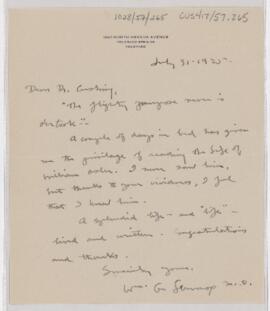 1028/57/265 CUS417/57.265
NORTH NEVADA AVENUE
COLORADO SPRINGS
COLORADO
July 31 - 1925.
Dear Dr. Cushing,
"The flighty purpose never is
o'ertook" -
A couple of days in bed has given
me the privilege of reading the Life of
William Osler. I never saw him,
but thanks to your vividness, I feel
that I knew him.
A splendid life - and "Life" -
lived and written. Congratulations
and thanks.
Sincerely yours,
Wm. M.D.